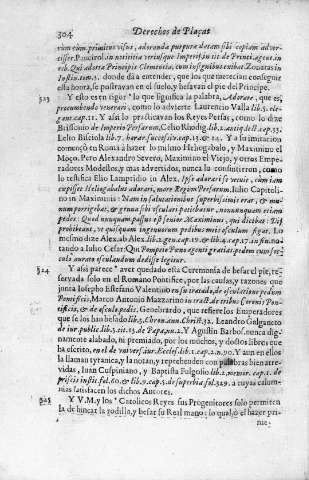 304 Derechos de Plaças
rum eum primitus visus, adoranda purpura deram sibi copiam advertisset
esta honra, se postravan en el suelo, y besavan el pie del Principe.
523 Y esto es en rigor lo que significa la palabra, Adorare, que es,
procumbendo venerari, como lo advierte Laurencio Valla lib. 5. elegan.
cap. 11. Y assi lo practicavan los Reyes Persas, como lo dize
Brissonio de Imperio Persarum, Celio Rhodig. lib.
Y a su imitacion
començò en Roma à hazer lo mismo Heliogabalo, y Maximino el
Moço. Pero Alexandro Severo, Maximino el Viejo, y otros Emperadores
Modestos, y mas advertidos, nunca la consintieron, como
lo testifica Elio Lampridio in Alex. Ipse adorari se vetuit, cum iam
cœpisset Heliogabalus adorari, more Regum Persarum. Julio Capitolino
in Maximinis: Nam in salutationibus superbissimus erat, & manum
porrigebat, & genua sibi osculari patiebatur, nonnunquam etiam
pedes: quod nunquam passus est senior Maximinus, qui dicebat: Dij
prohibeant, ut quisquam ingenuorum pedibus meis osculum figat. Lo
mesmo dize Alex. ab Alex. lib. 2. gen. cap. 19. & lib. 4. cap. 17. in fin. notando
a Julio Cesar: Qui Pompeio Pœno agenti gratias pedem cum socculo
aurato osculandum dedisse legitur.
524 Y assi parece aver quedado esta Ceremonia de besar el pie, reservada
solo en el Romano Pontifice, por las causas, y razones que
junta Iosepho Estefano Valentino en su tratado, de osculatione pedum
Pontificis, Marco Antonio Mazzarino in tract. de tribus Coronis Pontificis,
& de osculo pedis. Genebrardo, que refiere los Emperadores
que se los han besado
Leandro Galganeto
de iur. public. lib. 3. tit. 13. de Papa, nu. 2. Y Agustin Barbos. nunca dignamente
alabado, ni premiado, por los muchos, y doctos libros que
ha escrito, en el de univers. iur. Eccles. lib. 1. cap. 2. n. 70. Y aun en ellos
la llaman tyranica, y la notan, y reprehenden con palabras bien atrevidas,
Iuan Cuspiniano, y Baptista Fulgosio
a cuyas calumnias
satisfacen los dichos Autores.
525 Y V.M. y los Catolicos Reyes sus Progenitores solo permiten
la de hincar la rodilla, y besar su Real mano: lo qual, o el hazer prime-